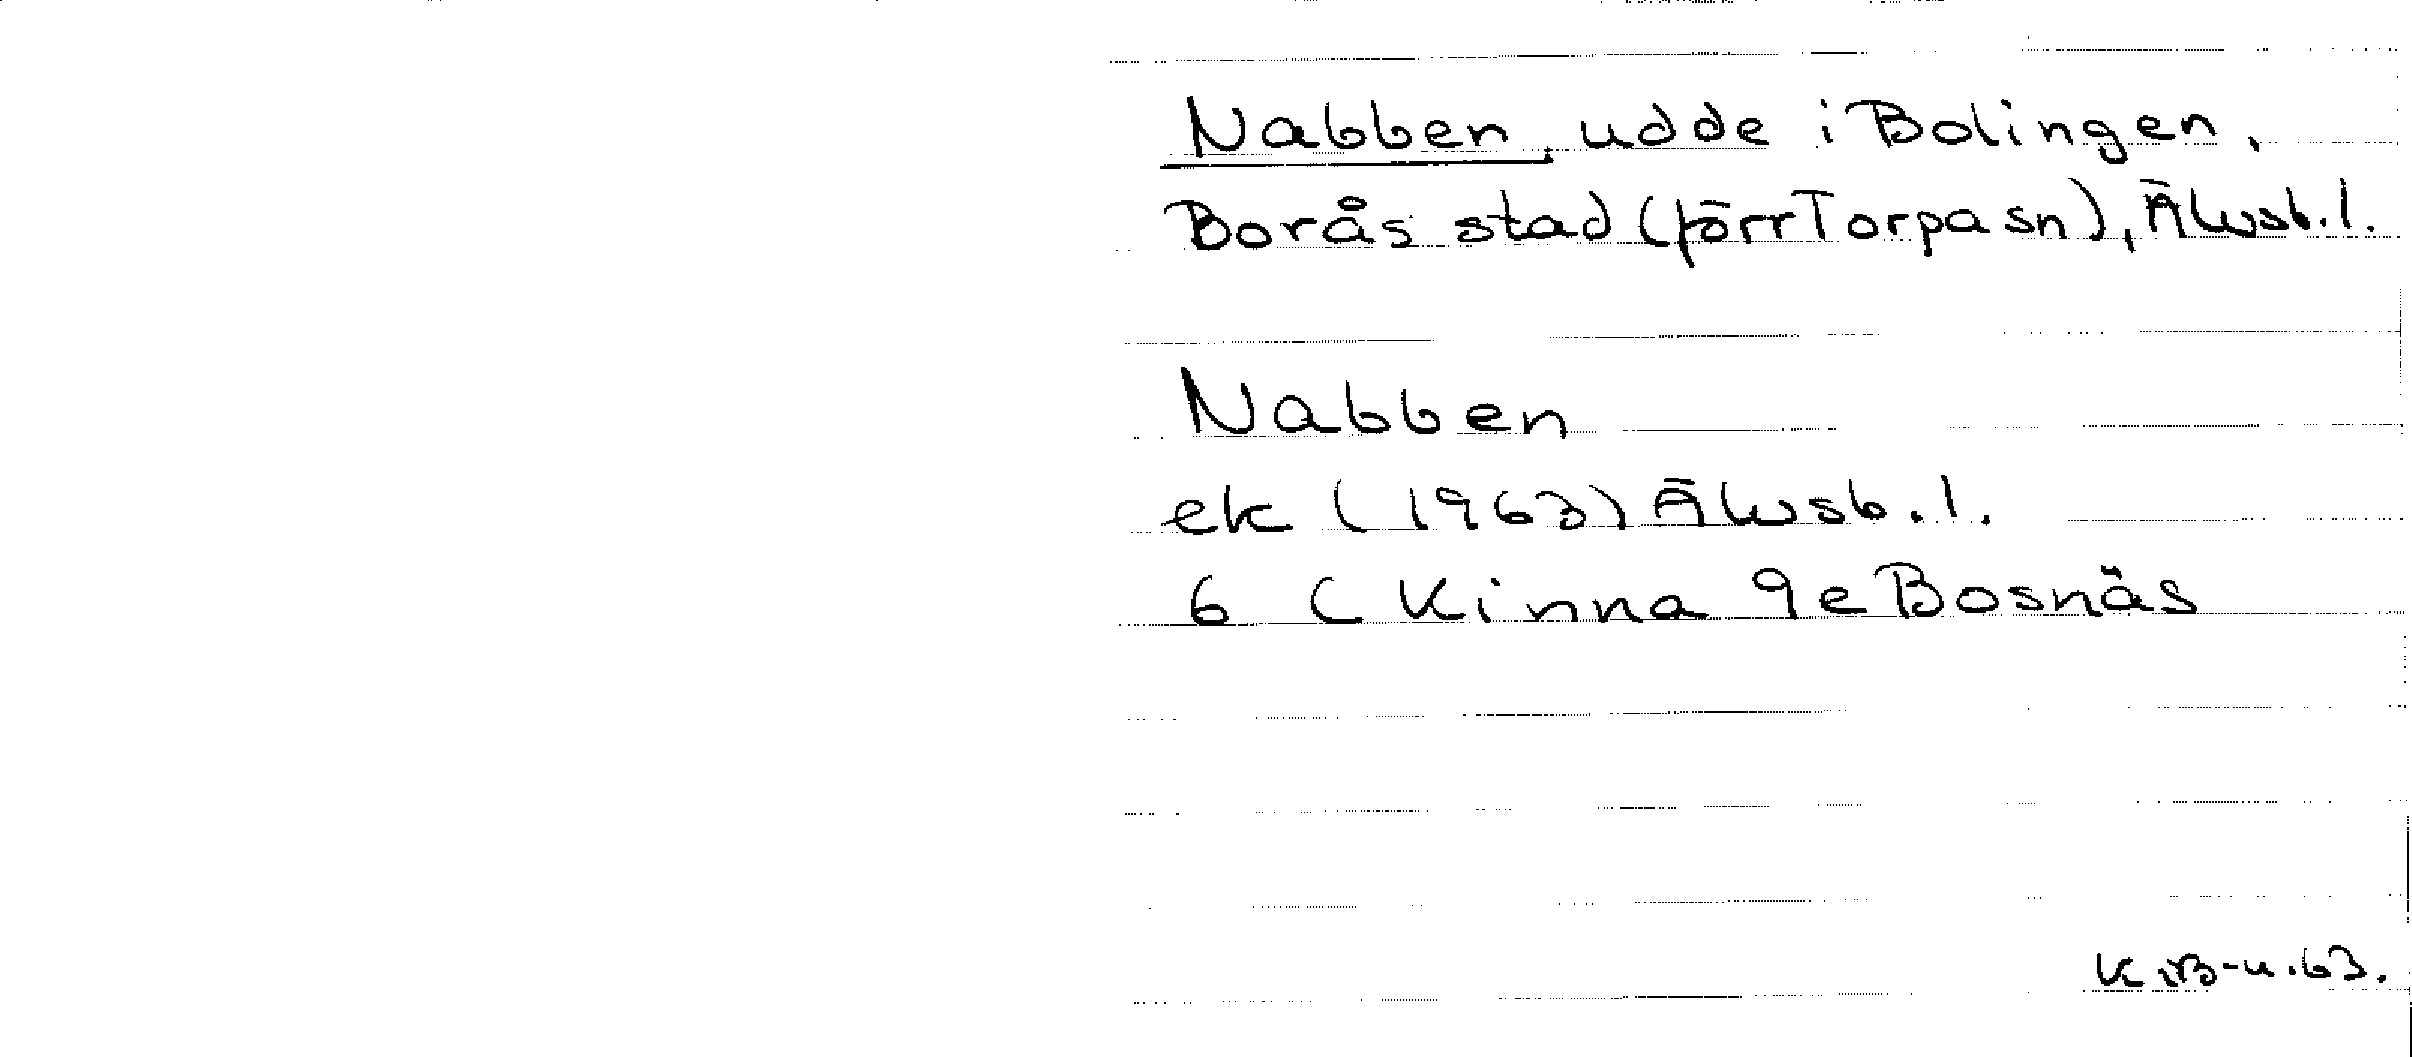 Nabben, udde i Bolingen,
Borås stad (förr Torpa sn), Älvsb.l.
Nabben
ek (1963) Älvsb.l.
6 C Kinna 9e Bosnäs
K.B-u.63.